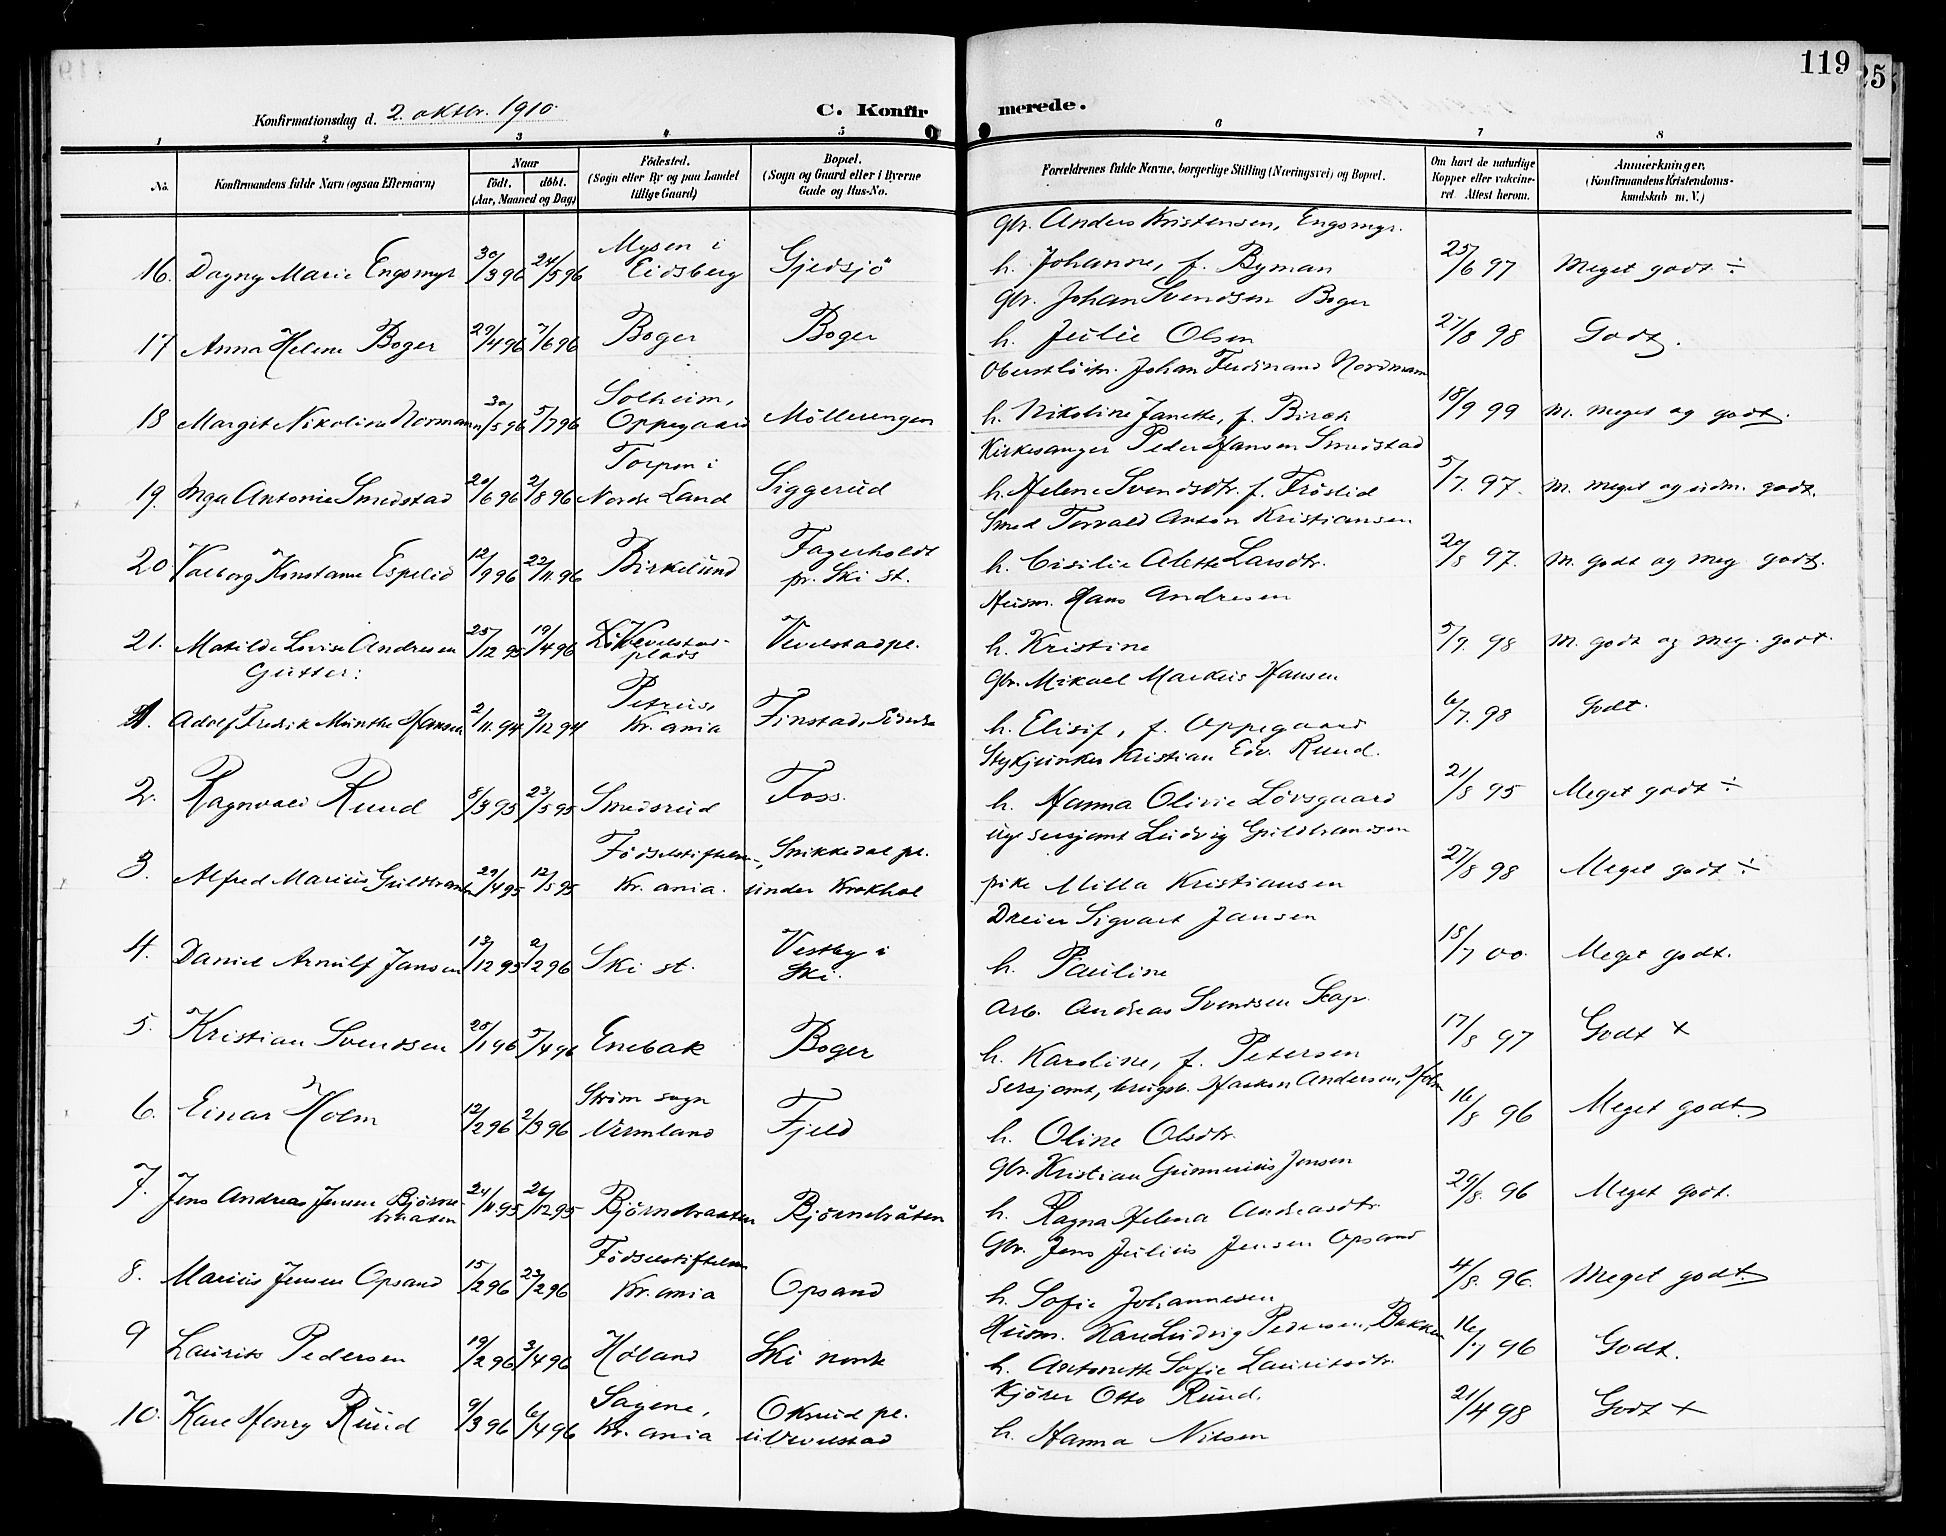 119
25
Konfirmationsdag d. 2. oktbr. 1910.
C. Konfirmerede.
1 2 3 4 5 6 7 8
No.
Konfirmandens fulde Navn (ogsaa Efternavn)
Naar
födt. döbt.
(Aar, Maaned og Dag)
Födested.
(Sogn eller By og paa Landet
tillige Gaard)
Bopæl.
(Sogn og Gaard eller i Byerne
Gade og Hus-No.
Forældrenes fulde Navne, borgerlige Stilling (Næringsvei) og Bopæl.
Om havt de naturlige
Kopper eller vakcine-
ret. Attest herom.
Anmærkninger.
(Konfirmandens Kristendoms-
kundskab m. V.)
Gbr. Anders Kristensen, Engsmyr.
Mysen i
16. Dagny Marie Engsmyr 30/3 96 24/5 96 Eidsberg Gjedsjö h. Johanne, f. Byman 25/6 97 Meget godt ÷
Gbr. Johan Svendsen Boger
17 Anna Helene Boger 29/4 96 7/6 96 Boger Boger h. Julie Olsen 27/8 98 Godt.
Oberstlöitn. Johan Ferdinand Nordmann
Solheim,
18 Margit Nikoline Normann 30/5 96 5/7 96 Oppegaard Möllerengen h. Nikoline Janette, f. Birch 18/9 99 M. meget og godt.
Kirkesanger Peder Hansen Smedstad
Torpen i
19. Inga Antonie Smedstad 20/6 96 2/8 96 Nordre Land Siggerud h. Helene Svendsdtr. f. Fröslid 5/7. 97. M. meget og udm. godt.
Smed Torvald Anton Kristiansen
20 Valborg Konstanse Espelid 12/9 96 22/11 96 Birkelund Fagerholdt
pr. Ski st. h. Cisilie Alette Larsdtr. 20/8 97. M. godt og meg. godt.
Husm. Hans Andresen
21. Matilde Lovise Andresen 25/12 95 19/4 96 Vevelstad-
plads Vevelstadpl. h. Kristine 5/9. 98 M. godt og meg. godt.
Gutter:
Gbr. Mikael Markus Hansen
Petrus,
1. Adolf Fredrik Munthe Hansen 2/11. 94 2/12 94 Kr.ania Finstad, h. Elisif, f. Oppegaard 6/7. 98 Godt.
Stykjunker Kristian Edv. Ruud.
2. Ragnvald Ruud 8/3 95 23/5 95 Smedsrud Foss. h. Hanna Olivie Lövsgaard 21/8 95 Meget godt ÷
Ugf. sersjant Ludvig Guldbrandsen
Födselstiftelsen, Snikkedal pl.
3. Alfred Marius Guldbrandsen 29/4 95 12/5 95 Kr.ania. under Krokhol pike Milla Kristiansen 27/8 98 Meget godt ÷
Dreier Sigvart Jansen
4. Daniel Arnulf Jansen 13/12 95 2/2 96 Ski st. Vestby i
Ski. h. Pauline 18/7 00. Meget godt.
Arb. Andreas Svendsen
5. Kristian Svendsen 25/1 96 5/4 96 Enebak Boger h. Karoline, f. Petersen 17/8 97 Godt +
Sersjant, brugsb. Haakon Andersen, Holm
Ström sogn
6. Einar Holm 12/2 96 2/3 96 Vermland Fjeld h. Oline Olsdtr. 16/8 96 Meget godt.
Gbr. Kristian Gunnerius Jensen
7. Jens Andreas Jensen Björne-
braaten 24/11 95 26/12 95 Björnebraaten Björnebråten h. Ragna Helena Andreasdtr 20/8. 96 Meget godt.
Gbr. Jens Julius Jensen Opsand
Födselsstiftelsen
8. Marius Jensen Opsand 15/2 96 23/2 96 Kr.ania Opsand h. Sofie Johannesen 4/8. 96. Meget godt.
Husm. Karl Ludvig Pedersen, Bakken
9 Laurits Pedersen 19/2 96 3/4 96 Höland Ski nordre h. Antonette Sofie Lauritsdtr. 16/7 96 Godt.
Kjörer Otto Ruud.
Sagene, Oksrud pl.
10. Karl Henry Ruud 9/3 96 6/4 96 Kr.ania u. Vevelstad h. Hanna Nilsen 21/4 98 Godt +